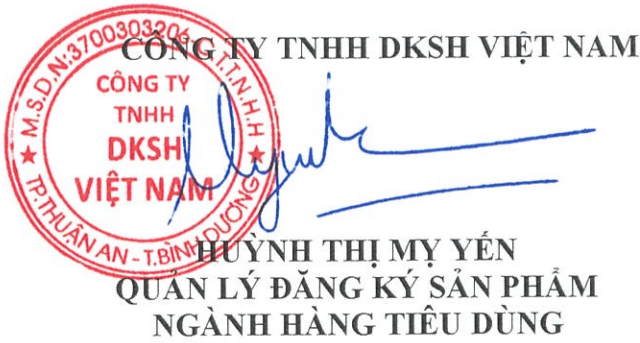 CÔNG TY TNHH DKSH VIỆT NAM
M.S.D.N:3700303206 - C.T.T.N.H.H
CÔNG TY
TNHH
DKSH
VIỆT NAM
TP.THUẬN AN - T.BÌNH DƯƠNG
HUỲNH THỊ MỴ YẾN
QUẢN LÝ ĐĂNG KÝ SẢN PHẨM
NGÀNH HÀNG TIÊU DÙNG